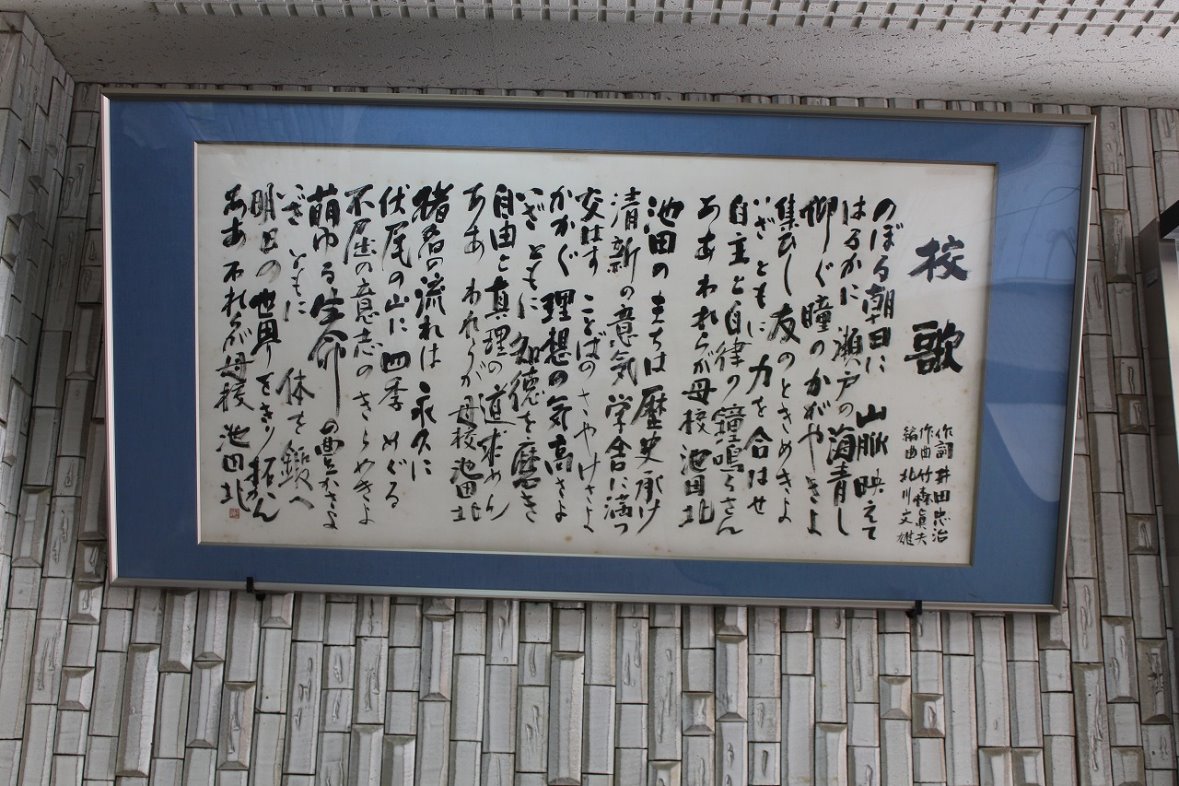 校歌
作詞 井田忠治
作曲 竹森眞夫
編曲 北川文雄
のぼる朝日に 山脈映えて
はるかに 瀬戸の海青し
仰ぐ瞳の かがやきよ
集ひし友の ときめきよ
いざ ともに 力を合はせ
自主と自律の鐘鳴らさん
ああ われらが母校 池田北
池田のまちは 歴史承け
清新の意気 学舎に満つ
交はす ことばの さやけさよ
かかぐ 理想の 気高さよ
いざ ともに 知徳を磨き
自由と真理の道求めん
ああ われらが母校 池田北
猪名の流れは 永久に
伏尾の山に 四季めぐる
不屈の意志の きらめきよ
萌ゆる生命の豊かさよ
いざ ともに 体を鍛へ
明日の世界をきり拓かん
ああ われらが母校 池田北